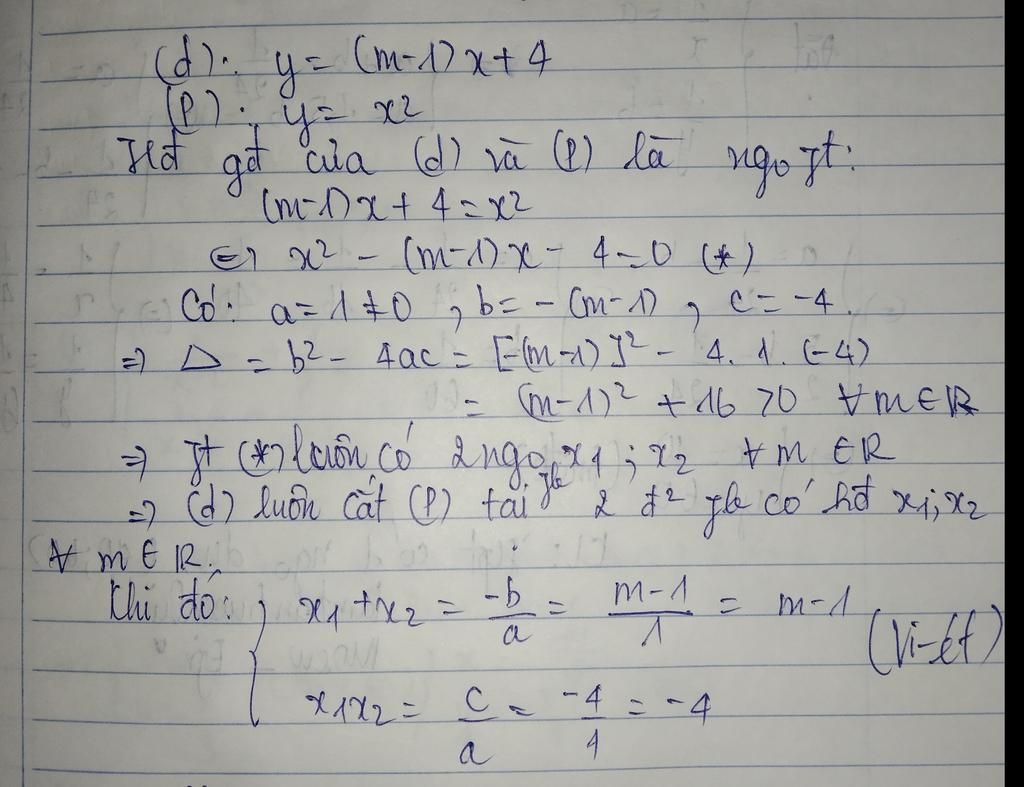 (d): y = (m-1)x + 4
(P): y = x²
Hđ gđ của (d) và (P) là ngo pt:
(m-1)x + 4 = x²
⇔ x² - (m-1)x - 4 = 0 (*)
Có: a = 1 ≠ 0, b = -(m-1), c = -4.
⇒ Δ = b² - 4ac = [-(m-1)]² - 4.1.(-4)
= (m-1)² + 16 > 0 ∀m∈ℝ
⇒ pt (*) luôn có 2 ngo pb x₁; x₂ ∀m ∈ℝ
⇒ (d) luôn cắt (P) tại 2 đ² pb có hđ x₁; x₂
∀ m ∈ ℝ.
Khi đó: { x₁ + x₂ = -b/a = m-1/1 = m-1
(Vi-ét)
x₁x₂ = c/a = -4/1 = -4